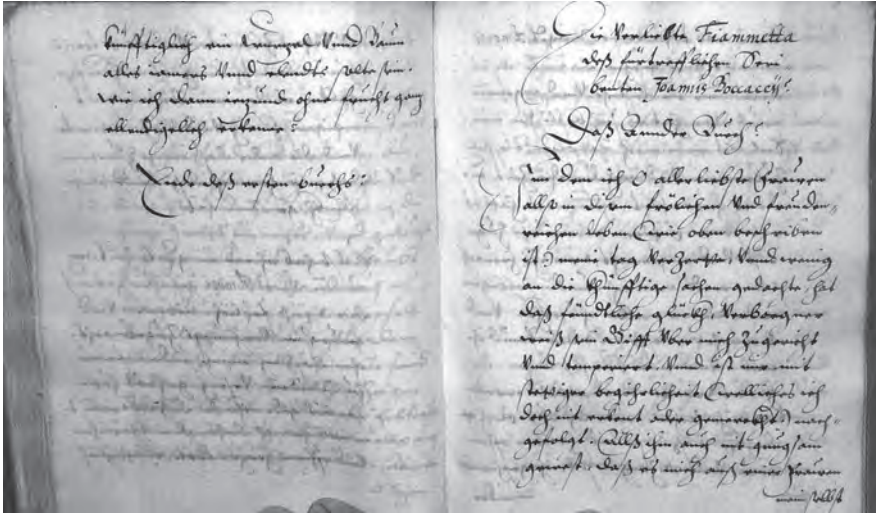 künfftiglich ein Vrsprung Vnnd Baum
alles iamers Vnnd ellendts solte sein.
wie ich dann ietzund ohne frücht ganz
ellendigelich erkenne.
Ende deß ersten buechs.
Die Verliebte Fiammetta
deß fürtrefflichen Scri
benten Joannis Boccaccij.
Daß Annder Buech.
In dem ich O allerliebste Frauwen
allso in disem frölichen Vnd freuden-
reichen leben (wie oben beschriben
ist) meine tag Verzerte, Vnnd wenig
an die khünfftige sachen gedachte, hat
daß feindtliche glückh, Verborgner
weiß sein Gifft Vber mich zugericht
Vnd temperiert. Vnnd ist mir mit
stettiger begihrlicheit (welliches ich
doch nit erkent oder gemerckht) nach-
gefolgt. Allß ihm auch nit genugsam
gewest, daß es mich auß einer Frauwen
mein selbst